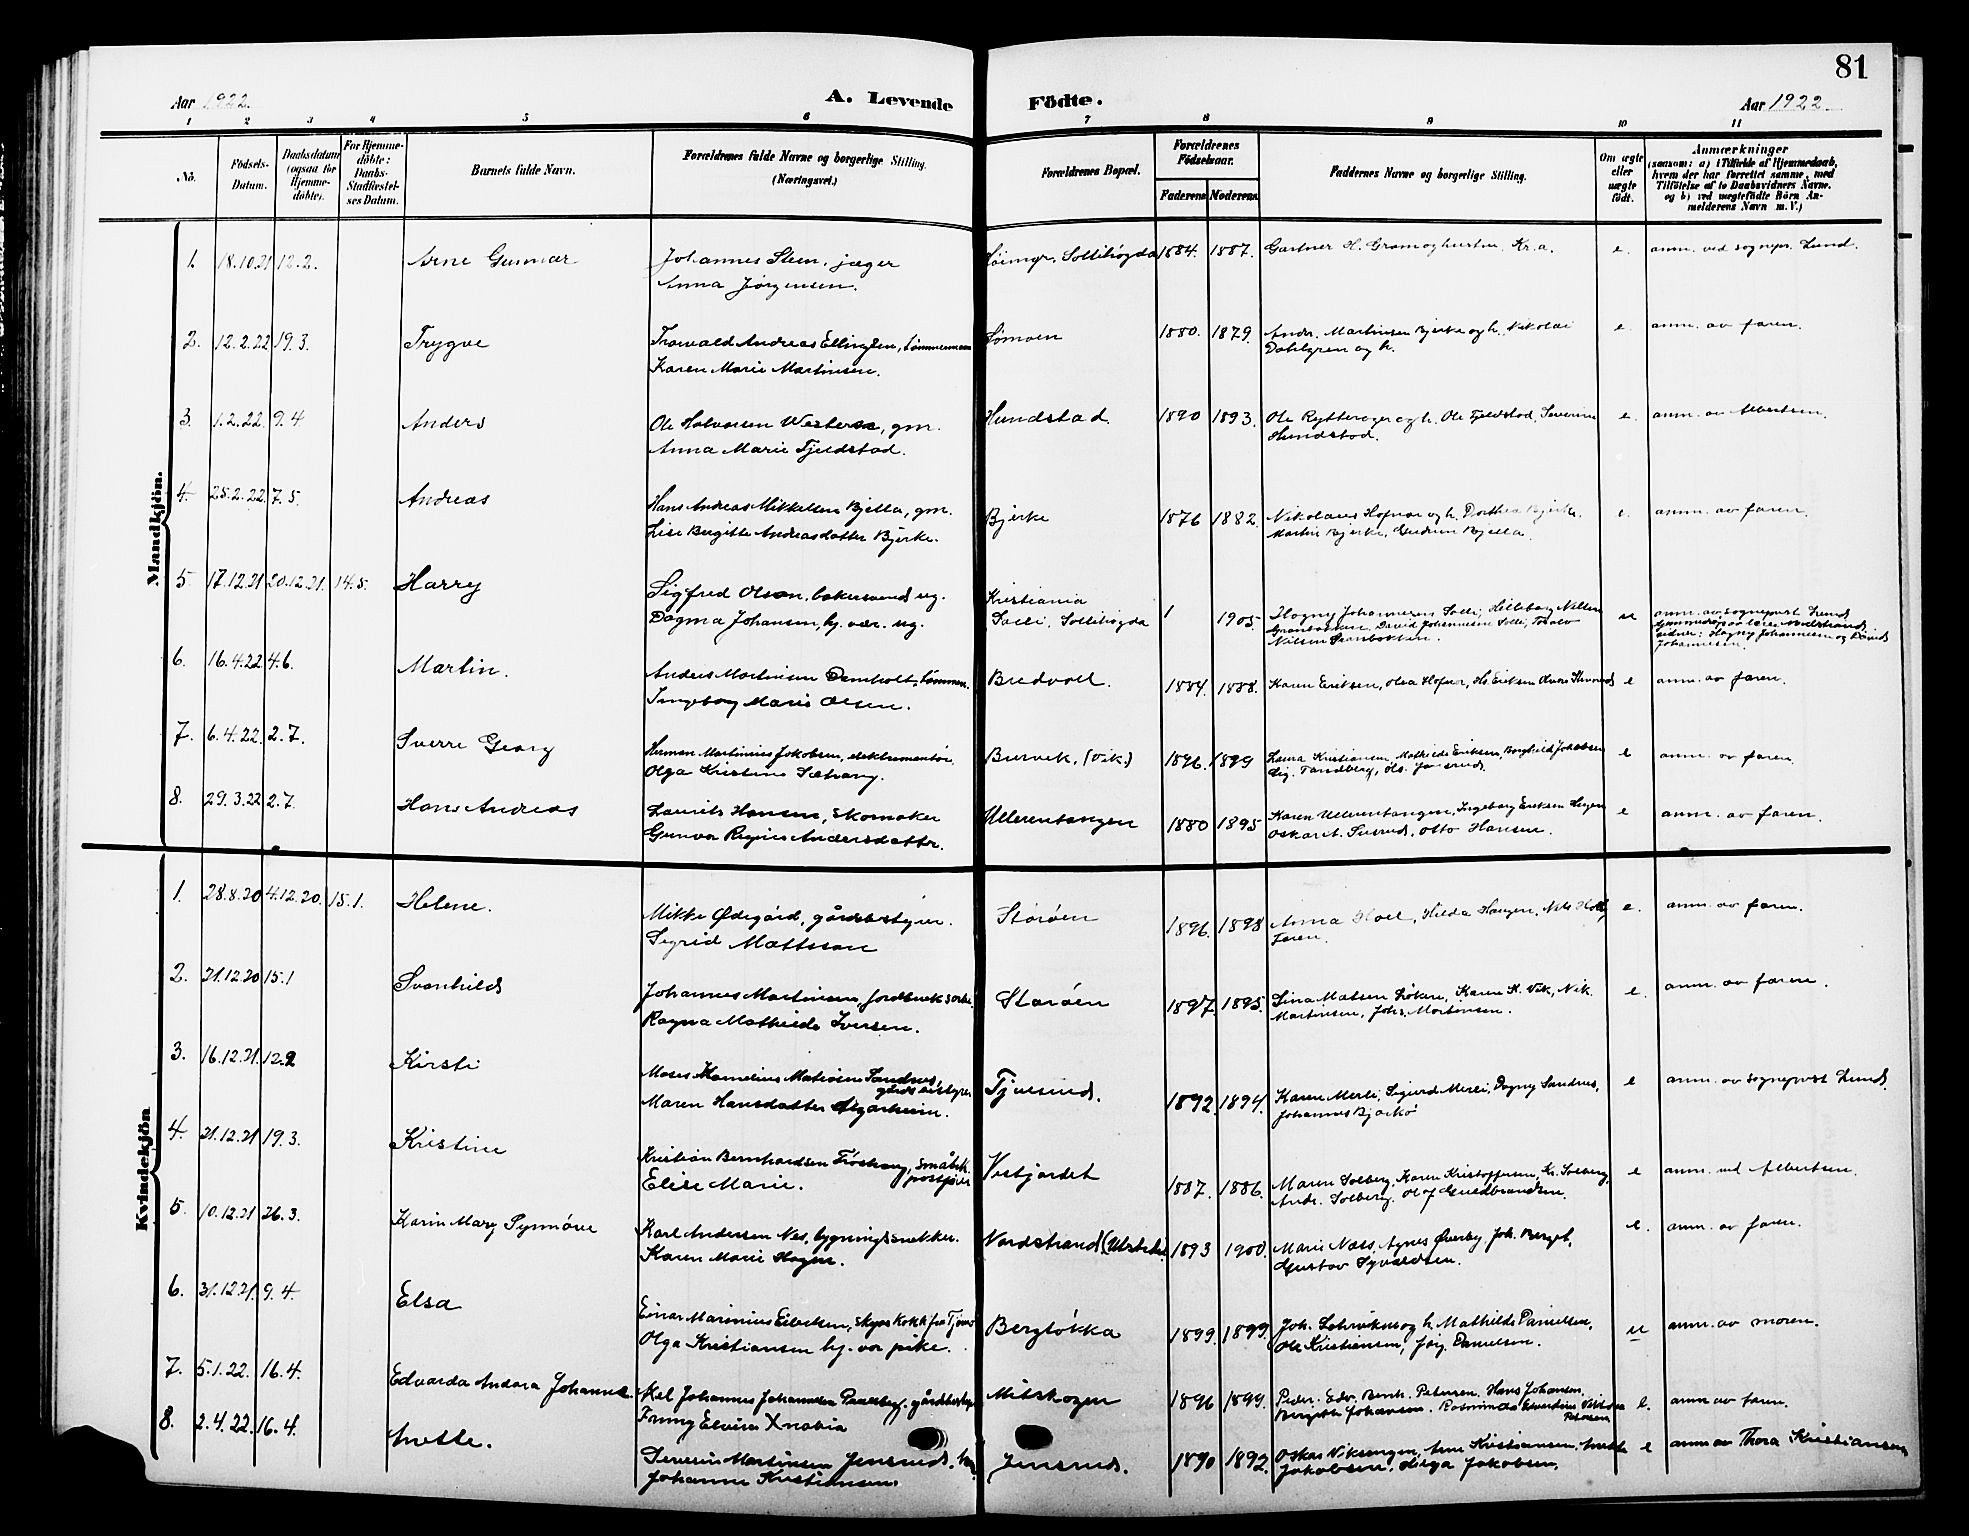 81
Aar 1922.
A. Levende
Födte.
Aar 1922.
1 2 3 4 5 6 7 8 9 10 11
No.
Födsels-Datum.
Daabsdatum (ogsaa for Hjemme-döbte).
For Hjemme-döbte: Daabs-Stadfæstel-ses Datum.
Barnets fulde Navn.
Forældrenes fulde Navne og borgerlige Stilling. (Næringsvei.)
Forældrenes Bopæl.
Forældrenes Födselsaar.
Faderens Moderens
Faddernes Navne og borgerlige Stilling.
Om ægte eller uægte födt.
Anmærkninger
(saasom: a) i Tilfælde af Hjemmedaab, hvem der har forrettet samme, med Tilföielse af to Daabsvidners Navne. og b) ved uægtefödte Börn An-melderens Navn m. V.)
Mandkjön.
1. 18.10.21 12.2. Arne Gunnar
Johannes Steen, jæger
Anna Jørgensen.
Sollihøgda 1884. 1887. Gartner H. Kr.a. e. anm. ved sognepr. Lund.
2. 12.2.22 19.3. Trygve
Torwald Andreas Ellingsen, tømmermann
Karen Marie Martinsen.
Sømoen 1880. 1879. Andr. Martinsen Bjerke og h. Nikolai
Dahlgren og h.
e. anm. av faren.
3. 1.2.22. 9.4 Anders
Ole Halvorsen Western, gm.
Anna Marie Fjeldstad.
Hundstad 1890 1893. Ole Rytterager og h. Ole Fjeldstad, Severine
Hundstad.
e. anm. av Albertsen.
4. 25.2.22. 7.5. Andreas
Hans Andreas Mikkelsen Bjella, gm.
Lise Bergitte Andreasdatter Bjerke.
Bjerke 1876 1882. Nikolaus Hofnor og h. Dorthea Bjerke.
Martin Bjerke, Gudrun Bjella.
e. anm. av faren.
5. 17.12.21 20.12.21. 14.5. Harry
Sigfred Olsen, bakersvend ug.
Dagma Johansen, hj. vær. ug.
Kristiania
Solli, Sollihøgda
1905. Hagny Johannesen Solli, Nilsen
Granbakken, David Johannesen Solli,
Nilsen Granbakken.
u anm. av sogneprst Lund
vidner: Hagny Johannesen og David
Johannesen.
6. 16.4.22 4.6. Martin.
Anders Martinsen Damholt, tømmerm.
Ingeborg Marie Olsen.
Bredvoll. 1884. 1888. Karen Eriksen, Olea Hofnor, Hs. Eriksen e anm. av faren.
7. 6.4.22. 2.7. Sverre Georg
Herman Martinius Jakobsen, elektromontør
Olga Kristine Sætrang.
Burvik, (Vik.) 1896. 1899 Laura Kristiansen, Mathilde Eriksen, Borghild Jakobsen
Sig. Tandberg, Ols. Jonsrud.
e anm. av faren.
8. 29.3.22 2.7. Hans Andreas
Laurits Hansen, Skomaker
Gunvor Regine Andersdatter.
Ullerentangen 1880 1895 Karen Ullerentangen, Ingeborg Eriksen
Oskar A. Otto Hansen.
e anm. av faren.
Kvindekjön
1. 28.8.20 4.12.20. 15.1. Helene.
Mikke Ødegård, gårdsbestyrer.
Sigrid Mattsson
Storøen 1896. 1898 Anna Hoel, Hilda Haugen, Nils Hoel,
Faren.
e. anm. av faren.
2. 21.12.20 15.1 Svanhild
Johannes Martinsen, jordbruksarb.
Ragna Mathilde Iversen.
Storøen 1897. 1895. Lina Matsen Løken, Karen K. Vik, Nik.
Martinsen, Johs. Mortensen.
e. anm. av faren.
3. 16.12.21. 12.2 Kirsti
Moses Kornelius Matisen Sandnes,
gårdsbestyrer
Maren Hansdatter
Fjulsrud. 1892. 1894. Karen Merli, Sigurd Merli, Dagny Sandnes,
Johannes Bjørkø
e anm. av sogneprst Lund.
4. 21.12.21 19.3. Kristine
Kristian Bernhardsen Frøshaug, småbrk.
postfører
Elise Marie.
Vestjordet 1887. 1886. Maren Solberg, Karen Kristoffersen, Kr. Solberg,
Andr. Solberg, Olaf Guldbrandsen.
e anm. ved Albertsen.
5. 10.12.21 26.3. Karin Mary Synnøve
Karl Andersen Nes, bygningssnekker.
Karen Marie Hagen.
Nordstrand 1893 1900. Marie Næss, Agnes Øverby, Joh. Berget,
Gustav Syvaldsen.
e. anm. av faren.
6. 31.12.21. 9.4. Elsa
Einar Marinius Eilertsen, skibskokk fra Tjømø
Olga Kristiansen hj.vær. pike.
Bergløkka 1899. 1899. Joh. og h. Mathilde Danielsen,
Ole Kristiansen, Jørg. Danielsen.
u anm. av moren.
7. 5.1.22. 16.4. Edvarda Andora Johanne.
Johannes Johannsen gårdbestyr
Fanny Elvira Xnabia
Mitskogen 1896 1899. Peder. Edv. Bernh. Petersen. Hans Johansen,
Bergith Johansen.
Petersen
e. anm. av faren.
8. 2.4.22. 16.4. Anette.
Severin Martinsen Jensrud,
Johanne Kristiansen.
Jensrud. 1890 1892. Oskar Niksengen, Arne Kristiansen, Anette
Jakobsen, Helga Jakobsen.
e anm av Thora Kristiansen